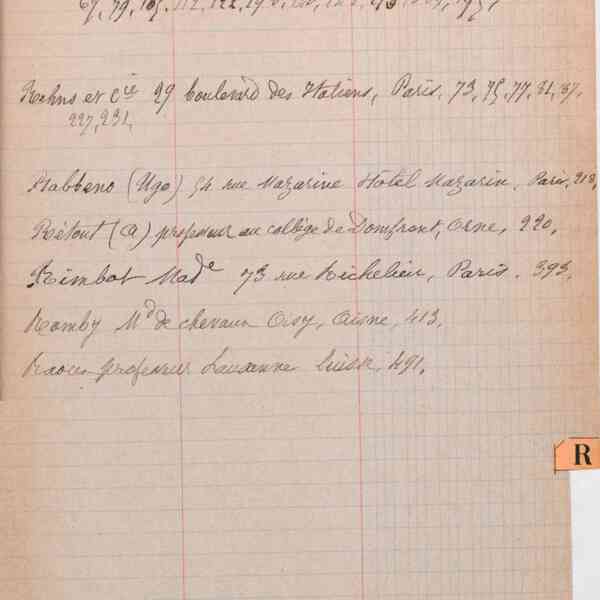 67, 79, 105, 112, 122,
Rehns et Cie 29 boulevard des Italiens, Paris, 73, 75, 77, 81, 87,
227, 231,
Rabbeno (Ugo) 54 rue Mazarine Hotel Mazarin, Paris, 218,
Rétout (A) professeur au collège de Domfront, Orne, 220,
Rimbot Made 73 rue Richelieu, Paris. 393,
Romby Md de chevaux Crsy, Aisne, 413,
Raoux professeur Lausanne Suisse, 491,
R